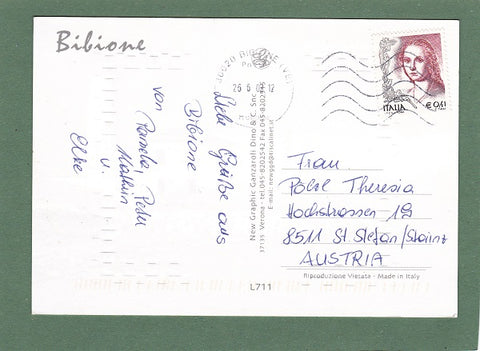 Bibione
30020 BIBIONE (VE)
26 6 0 12
ITALIA
€ 0,41
Liebe Grüße aus
Bibione
von Pamela, Peter
Kathrin
u.
Elke
New Graphic Ganzaroli Dino & C. Snc
37135 Verona - tel.045-8202542 Fax 045-82025
E-mail:
Frau
Pölzl Theresia
Hochstrassen 19
8511 St Stefan/Stainz
AUSTRIA
Riproduzione Vietata - Made in Italy
L711